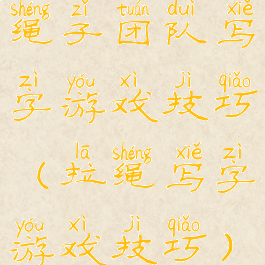 shéng zi tuán duì xiě
绳子团队写
zì yóu xì jì qiǎo
字游戏技巧
lā shéng xiě zì
（拉绳写字
yóu xì jì qiǎo
游戏技巧）